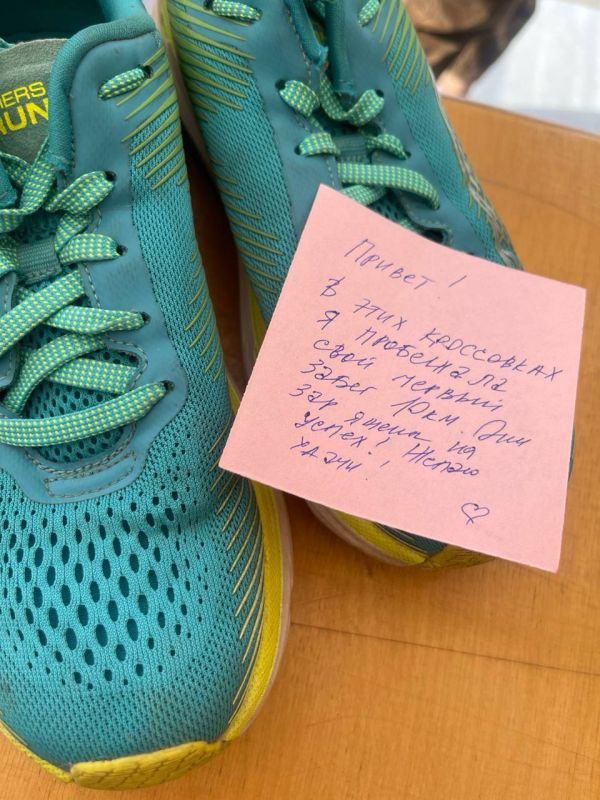 HERS
RUN
Привет!
В этих кроссовках
я пробежала
свой первый
забег 10км. Они
заряжены на
успех! Желаю
удачи!
♡